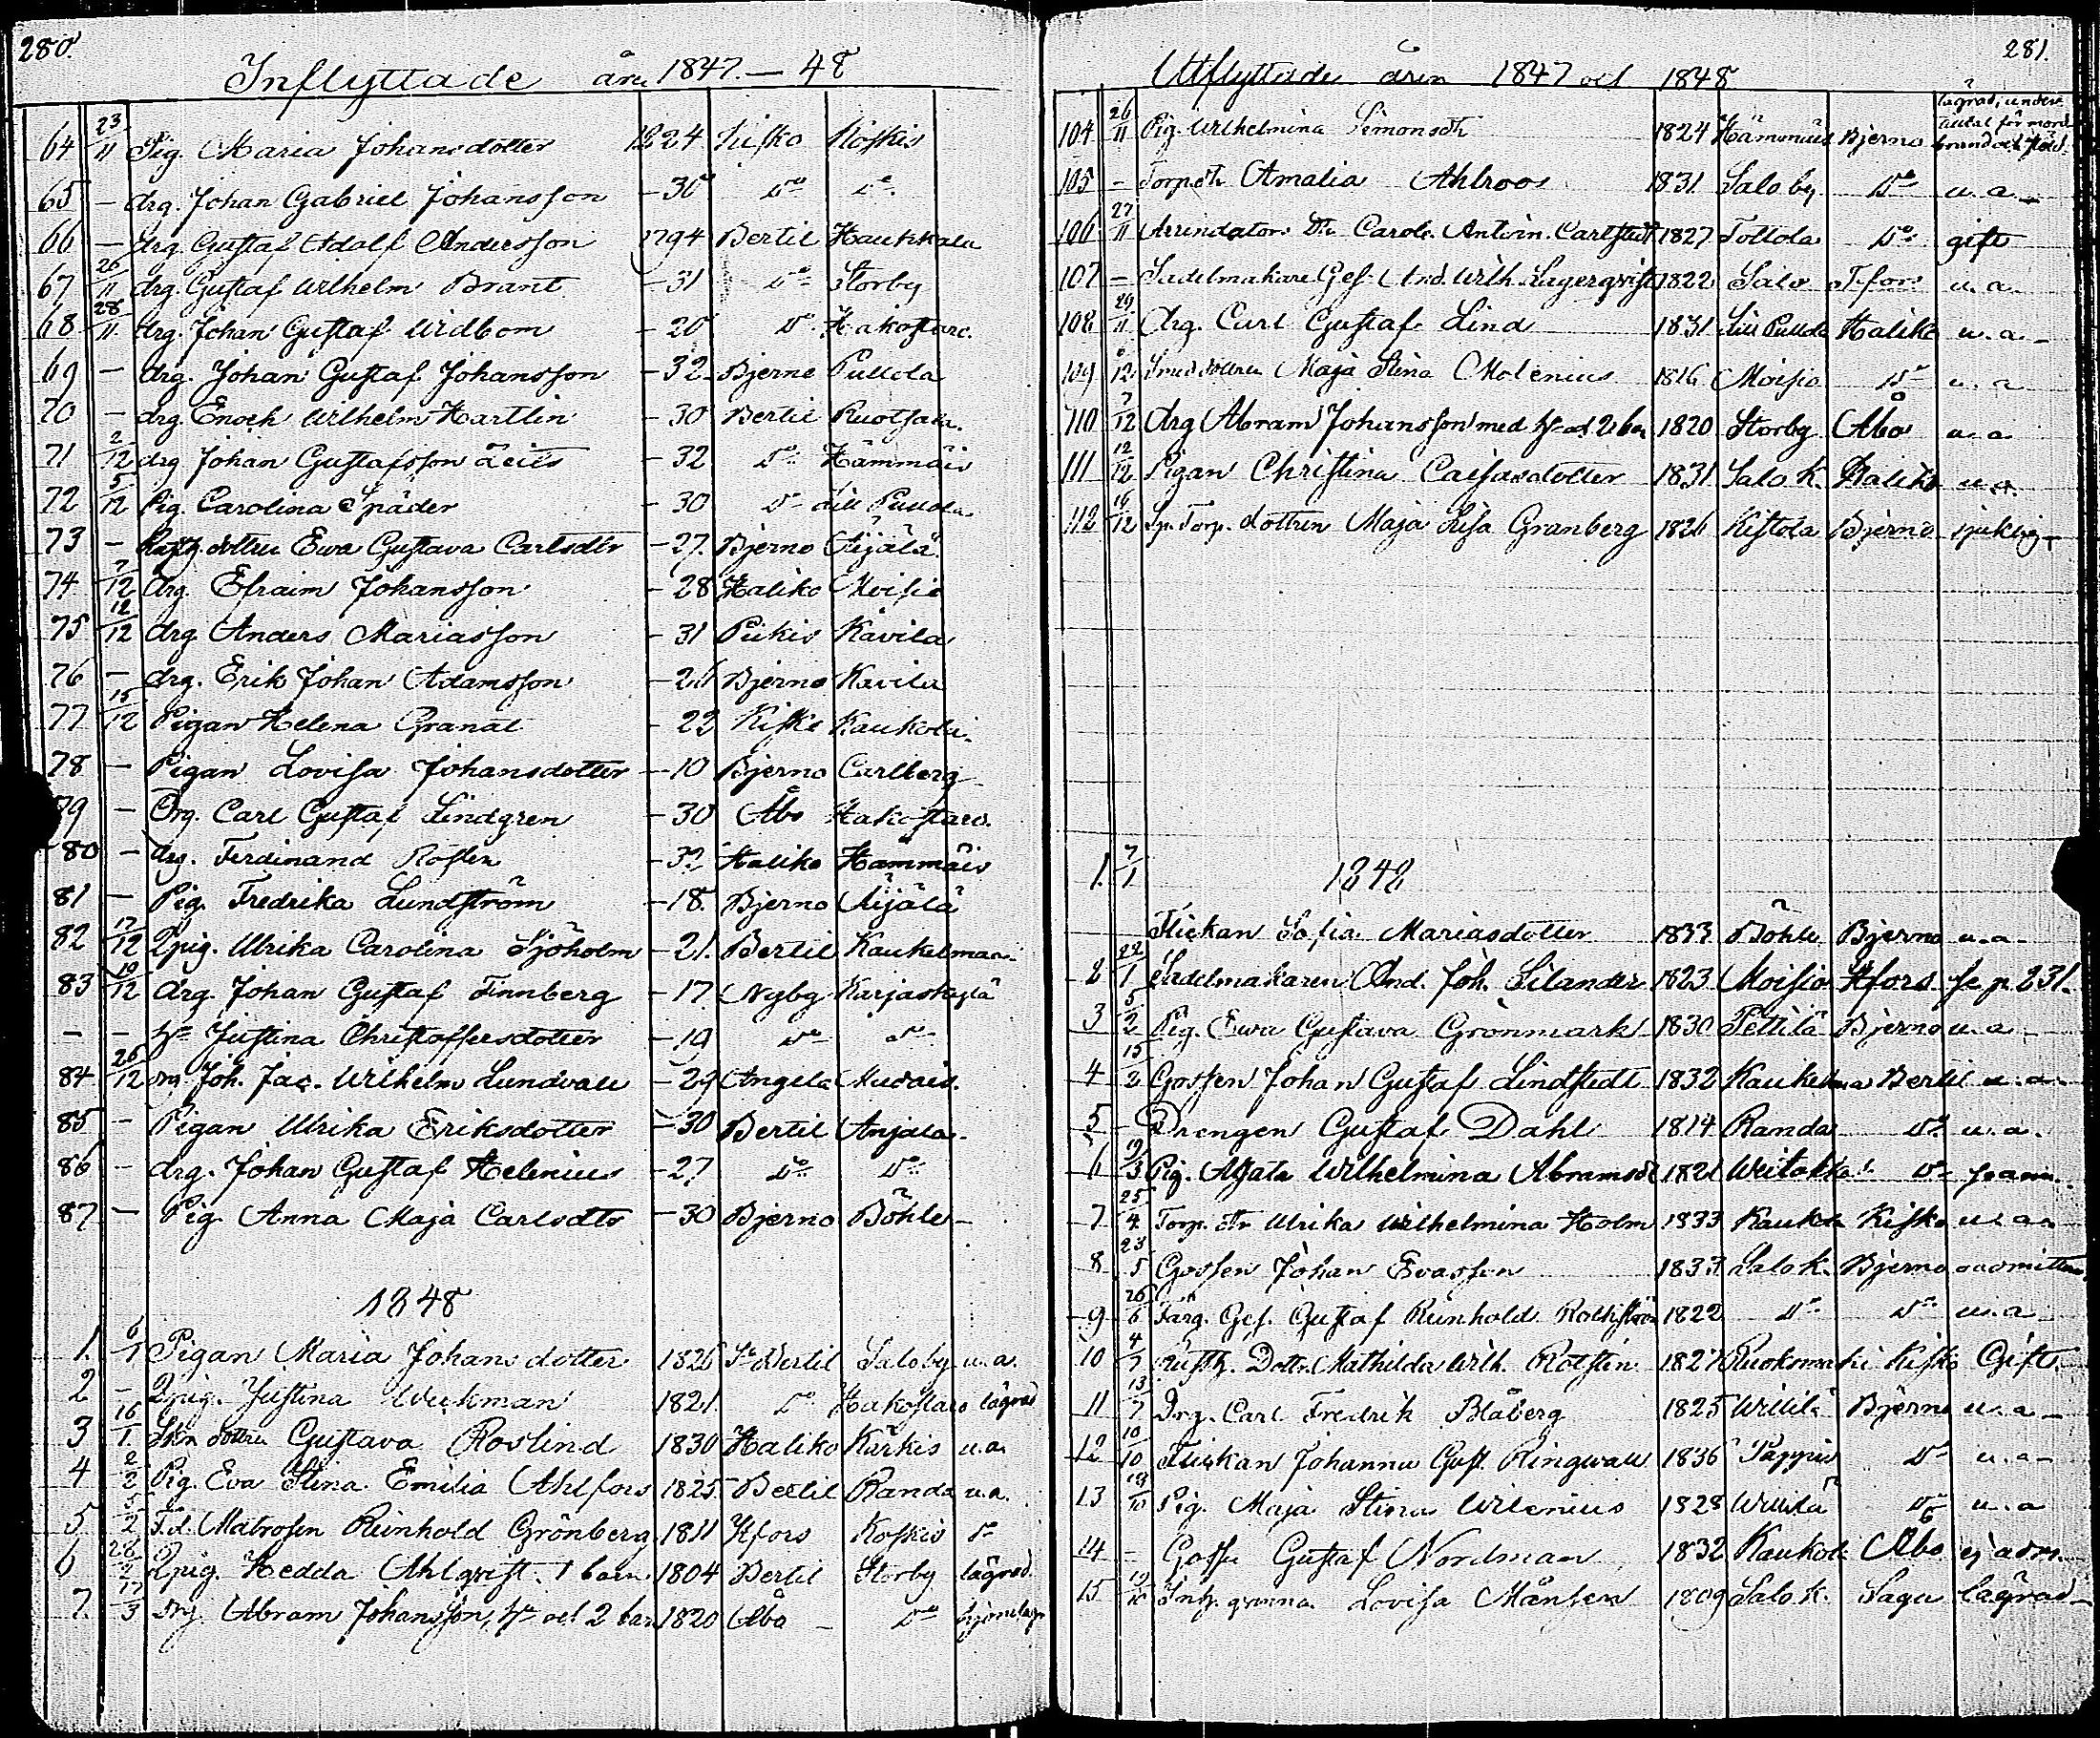 280.
Inflyttade åren 1847. — 48
64 23/11 Pig. Maria Johansdotter 1824 Kisko Koskis
65 — drg. Johan Gabriel Johansson — 30 Do Do
66 — drg. Gustaf Adolf Andersson 1794 Bertil Haukkala
67 26/11 drg. Gustaf Wilhelm Brant — 31 Do Storby
68 28/11 drg. Johan Gustaf Widbom — 20 Do Hakostaro.
69 — drg. Johan Gustaf Johansson — 32 Bjerno Pullola
70 — drg. Enoch Wilhelm Hartlin — 30 Bertil Ruotsala.
71 2/12 drg Johan Gustafsson — 32 Do Hämmäis
72 5/12 Pig. Carolina Späder — 30 Do Lill Pullola
73 — dottren Ewa Gustava Carlsdtr — 27. Bjerno Äijälä
74 7/12 drg. Efraim Johansson — 28 Haliko Moisio
75 12/12 drg. Anders Mariasson — 31 Pikis Kavila
76 — drg. Erik Johan Adamsson — 26 Bjerno Kavila
77 15/12 Pigan Helena Granat — 22 Kisko Kaukola.
78 — Pigan Lovisa Johansdotter — 10 Bjerno Carlberg
79 — Drg. Carl Gustaf Lindgren — 30 Åbo Hakostaro.
80 — drg. Ferdinand Rosten — 32 Haliko Hämmäis
81 — Pig. Fredrika Lundström — 18. Bjerno Äijälä
82 17/12 Qpig. Ulrika Carolina Sjöholm — 21. Bertil Kaukelmaa.
83 19/12 drg. Johan Gustaf Finnberg — 17 Nyby Karjaskylä
— — Hu Justina Christoffersdotter — 19 Do Do
84 26/12 drg. Joh. Jac. Wilhelm Lundvall — 29 Angela Murais.
85 — Pigan Ulrika Eriksdotter — 30 Bertil Anjala.
86 — drg. Johan Gustaf Helenius — 27 Do Do
87 — Pig. Anna Maja Carlsdtr — 30 Bjerno Böhle —
1848
1. 6/1 Pigan Maria Johansdotter 1826 St Bertil Saloby u.a.
2 — Qpig. Justina Wickman 1821. Do Hakostaro lägrad
3 16/1 dottren Gustava Roslind 1830 Haliko Kärkis u.a.
4 2/2 Pig. Eva Stina Emilia Ahlfors 1825 Bertil Randa u.a.
5 5/2 F.d. Matrosen Reinhold Grönberg 1811 Hfors Koskis Do
6 28/2 Qpig. Hedda Ahlqvist. 1 barn. 1804 Bertil Storby lägrad.
7. 17/3 drg. Abram Johansson, Hu och 2 barn 1820 Åbo — Do
281.
Utflyttade åren 1847 och 1848
lägrad, under
åtal för mord
104 26/11 Pig. Wilhelmina Simonsdtr 1824 Hämmäis Bjerno brand och
105 — Torp.dtr Amalia Ahlroos 1831 Salo by Do u.a.
106 27/11 Arrendators Dr Carol. Antoin. Carlstedt 1827 Tottola Do gift
107 — Sadelmakare Ges. And. Wilh. Lagerqvist 1822 Salo T.fors u.a.
108 29/11 Drg. Carl Gustaf Lind 1831 Lill Pullola Haliko u.a.
109 /12 Smed dottren Maja Stina Molenius 1816 Moisio Do u.a
110 7/12 Drg Abram Johansson med Hu och 2 barn 1820 Storby Åbo u.a.
111 12/12 Pigan Christina Caisasdotter 1831 Salo K. Haliko u.a.
112 16/12 Torp. dottren Maja Lisa Granberg 1826 Kistola Bjerno sjuklig
1. 7/1 1848
Flickan Sofia Mariasdotter 1833 Böhle Bjerno u.a.
2 22/1 Sadelmakaren And. Joh. Silander 1823 Moisio Hfors se p. 231.
3 5/2 Pig. Ewa Gustava Grönmark 1830 Pettilä Bjerno u.a.
4 15/2 Gossen Johan Gustaf Lindstedt 1832 Kaukelmaa Bertil u.a.
5 — Drengen Gustaf Dahl 1814 Randa Do u.a.
6 19/3 Pig. Agata Wilhelmina Abramsdt 1821 Weitakka Do
7 25/4 Torp. Dr Ulrika Wilhelmina Holm 1833 Kaukola Kisko u.a.
8 23/5 Gossen Johan Evasson 1833 Salo K. Bjerno oadmitteras
9 26/6 Färg. Ges. Gustaf Reinhold 1822 Do Do u.a
10 4/7 Dottr. Mathilda Wilh. Rotstén 1827 Ruokomäki Kisko Gift.
11 13/7 Drg. Carl Fredrik Blåberg 1825 Willilä Bjerno u.a —
12 10/10 Flickan Johanna Gust. Ringwall 1836 Do u.a —
13 19/10 Pig. Maja Stina Wilenius 1828 Willilä Do u.a
14 — Gosse Gustaf Nordman 1832 Kaukola Åbo ej adm.
15 19/10 Inh. qvinna Lovisa Månsen 1809 Salo K. Sagu lägrad